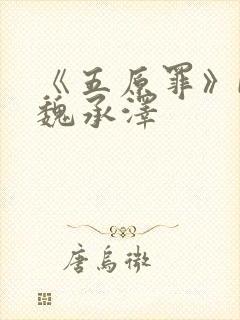 《五原罪》
魏承泽
唐乌微